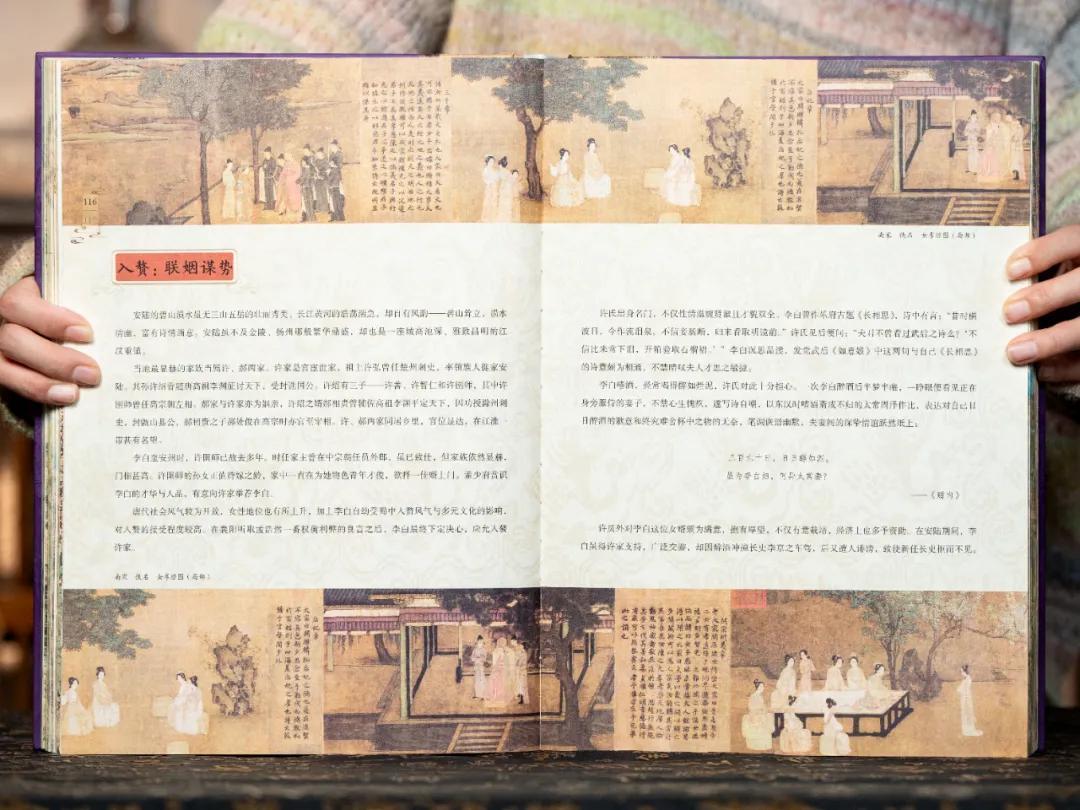 116
南宋 佚名 女孝经图（局部）
入赘：联姻谋势
安陆的碧山涢水虽无三山五岳的壮丽秀美、长江黄河的浩荡湍急，却自有风韵——碧山耸立，涢水
清幽，富有诗情画意。安陆虽不及金陵、扬州那般繁华鼎盛，却也是一座城高池深、雅致昌明的江
汉重镇。
当地最显赫的家族当属许、郝两家。许家是官宦世家，祖上许弘曾任楚州刺史，率领族人徙家安
陆。其孙许绍曾随唐高祖李渊征讨天下，受封谯国公。许绍有三子——许善、许智仁和许圉师，其中许
圉师曾任高宗朝左相。郝家与许家亦为姻亲，许绍之婿郝相贵曾辅佐高祖李渊平定天下，因功授滁州刺
史，封甑山县公。郝相贵之子郝处俊在高宗时亦官至宰相。许、郝两家同居乡里，官位显达，在江淮一
带甚有名望。
李白至安州时，许圉师已故去多年，时任家主曾在中宗朝任员外郎，虽已致仕，但家族依然显赫，
门楣甚高。许圉师的孙女正值待嫁之龄，家中一直在为她物色青年才俊，欲择一佳婿上门。孟少府赏识
李白的才华与人品，有意向许家举荐李白。
唐代社会风气较为开放，女性地位也有所上升，加上李白自幼受蜀中入赘风气与多元文化的影响，
对入赘的接受程度较高。在襄阳听取孟浩然一番权衡利弊的良言之后，李白最终下定决心，应允入赘
许家。
南宋 佚名 女孝经图（局部）
许氏出身名门，不仅性情温婉贤淑且才貌双全。李白曾作乐府古题《长相思》，诗中有言：“昔时横
波目，今作流泪泉。不信妾肠断，归来看取明镜前。”许氏见后便问：“夫君不曾看过武后之诗么？‘不
信比来常下泪，开箱验取石榴裙。’”李白沉思品读，发觉武后《如意娘》中这两句与自己《长相思》
的诗意颇为相通，不禁暗叹夫人才思之敏捷。
李白嗜酒，经常喝得醉如烂泥，许氏对此十分担心。一次李白醉酒后半梦半醒，一睁眼便看见正在
身旁服侍的妻子，不禁心生愧疚，遂写诗自嘲，以东汉时嗜斋戒不归的太常周泽作比，表达对自己日
日醉酒的歉意和终究难舍杯中之物的无奈，笔调诙谐幽默，夫妻间的深挚情谊跃然纸上：
三百六十日，日日醉如泥。
虽为李白妇，何异太常妻？
——《赠内》
许员外对李白这位女婿颇为满意，抱有厚望，不仅有意栽培，经济上也多予资助。在安陆期间，李
白虽得许家支持，广泛交游，却因醉酒冲撞长史李京之车驾，后又遭人诽谤，致使新任长史拒而不见。